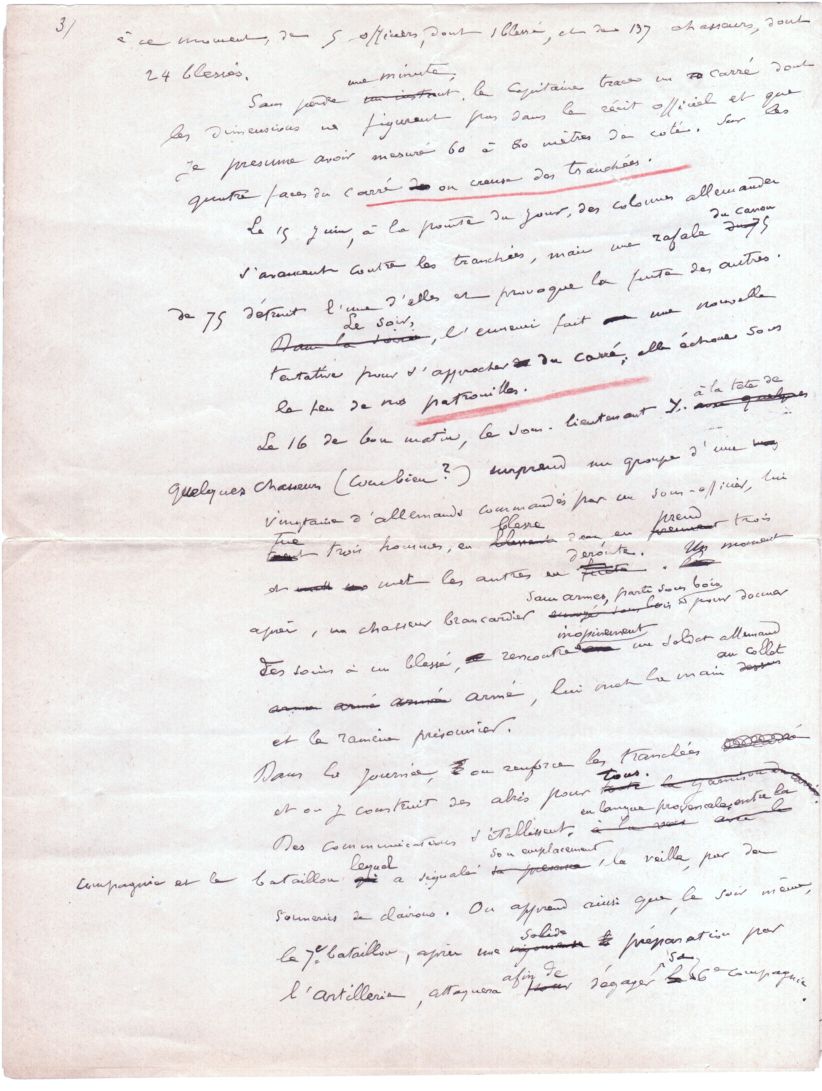 3/
à ce moment, de 5 officiers, dont 1 blessé, et de 137 chasseurs, dont
24 blessés.
une minute,
Sans perdre un instant. le Capitaine trace un carré dont
les dimensions ne figurent pas dans le récit officiel et que
je présume avoir mesuré 60 à 80 mètres de coté. Sur les
quatre faces du carré on creuse des tranchées.
Le 15 Juin, à la pointe du jour, des colonnes allemandes
du canon
s'avancent contre les tranchées, mais une rafale du 75
de 75 détruit l'une d'elles et provoque la fuite des autres.
Le soir,
Dans la soirée, l'ennemi fait une nouvelle
tentative pour s'approcher du carré; elle échoue sous
le feu de nos patrouilles.
à la tête de
Le 16 de bon matin, le sous-lieutenant Y. avec quelques
quelques chasseurs (Combien?) surprend un groupe d'une
vingtaine d'allemands commandés par un sous-officier, lui
tue blesse prend
tuent trois hommes, en blessent en prennent trois
déroute.
et met les autres en fuite. Un moment
sans armes, parti sous bois
après, un chasseur brancardier envoyé sous bois pour donner
inopinément
des soins à un blessé, rencontre un soldat allemand
au collet
armé armé armé, lui met la main dessus
et le ramène prisonnier.
Dans la journée, on renforce les tranchées
tous.
et on y construit des abris pour toute la garnison
en langue provençale, entre la
Des communications s'établissent. à la voix avec le
lequel son emplacement
compagnie et le bataillon qui a signalé sa présence, la veille, par des
sonneries de clairons. On apprend ainsi que, le soir même,
solide
le 7e bataillon, après une vigoureuse préparation par
afin de sa
l'artillerie, attaquera pour dégager la 6e compagnie.